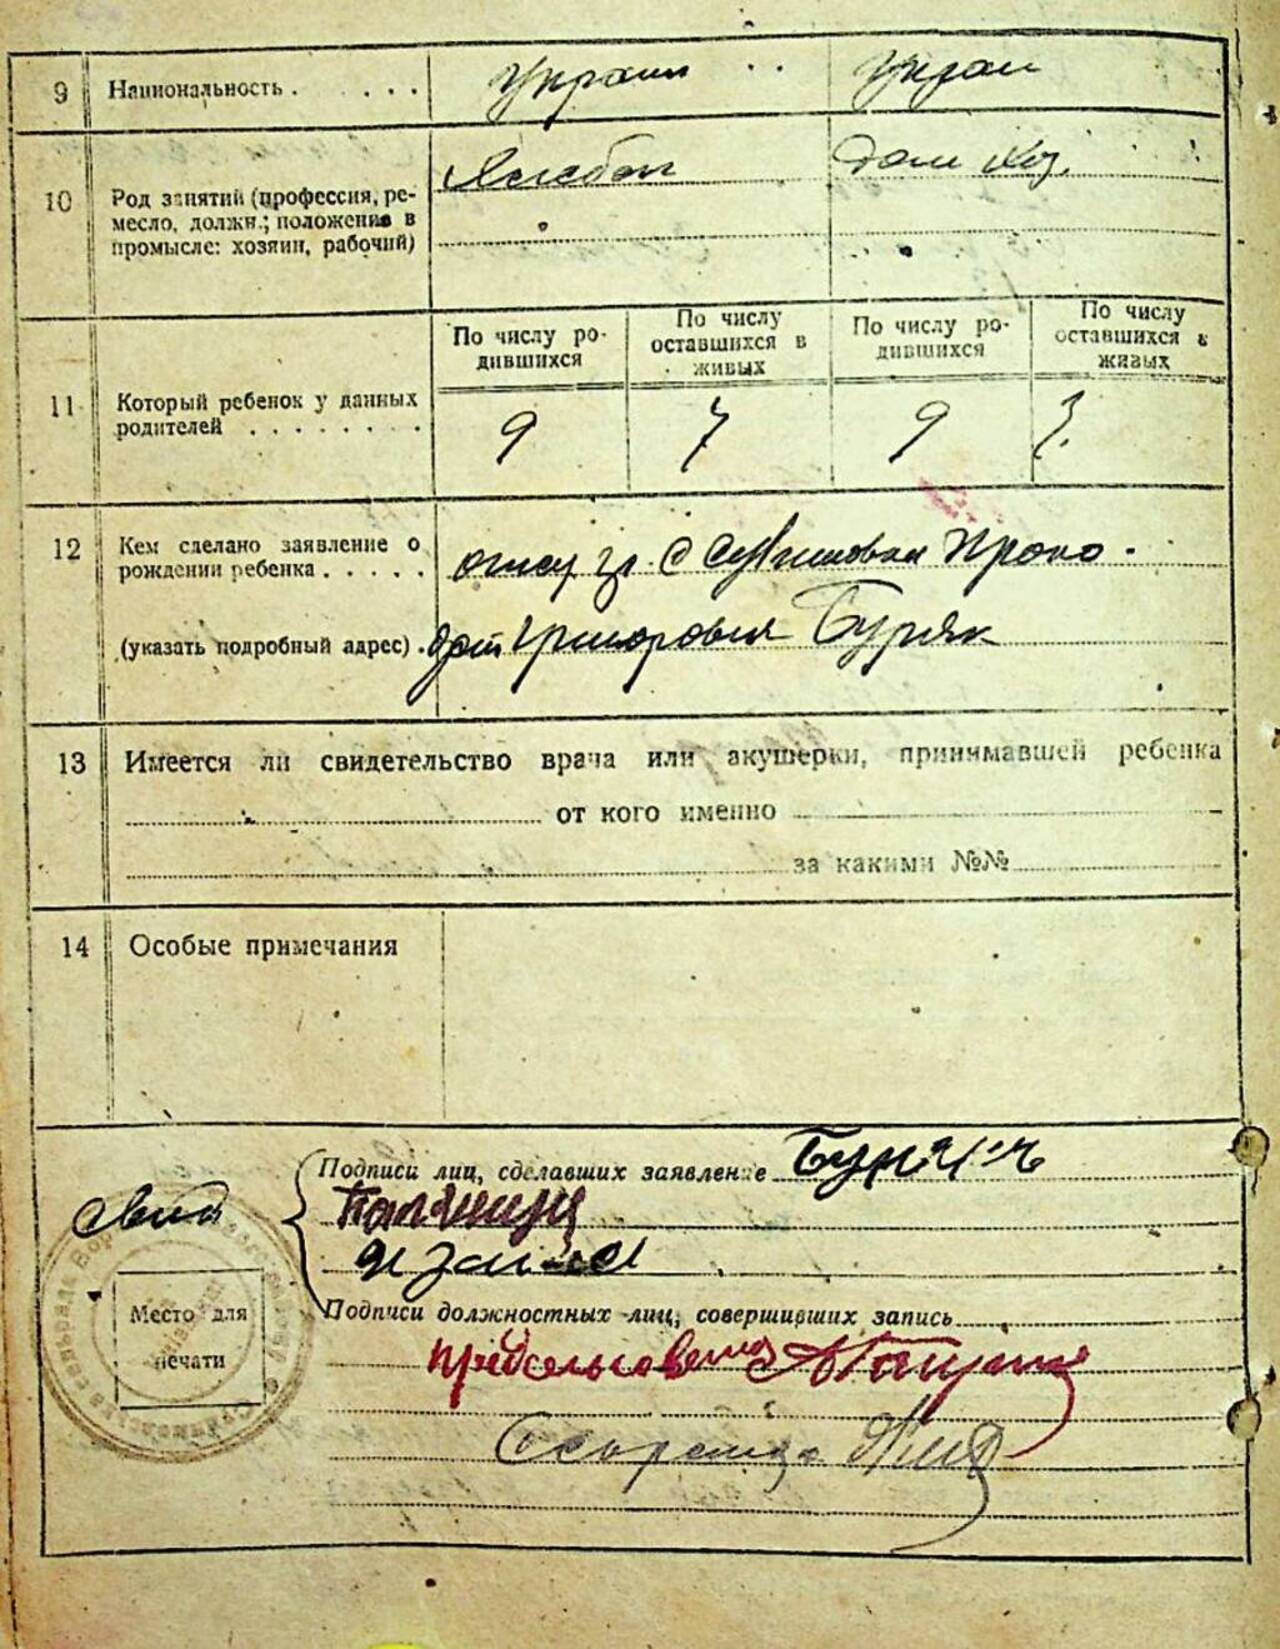 9 Национальность . . . . . Украин Украин
10 Род занятий (профессия, ре-
месло, должн.; положение в
промысле: хозяин, рабочий)
Хлебоп Дом хоз.
По числу ро-
дившихся
По числу
оставшихся в
живых
По числу ро-
дившихся
По числу
оставшихся в
живых
11 Который ребенок у данных
родителей . . . . . . . .
9 7 9 7.
12 Кем сделано заявление о
рождении ребенка . . . . .
отец гр. с Проко-
(указать подробный адрес) . Григоровия Буряк
13 Имеется ли свидетельство врача или акушерки, принимавшей ребенка
от кого именно
за какими №№
14 Особые примечания
Подписи лиц, сделавших заявление Буряк
Место для
печати
Подписи должностных лиц, совершивших запись
Предсельсовета
Секретар